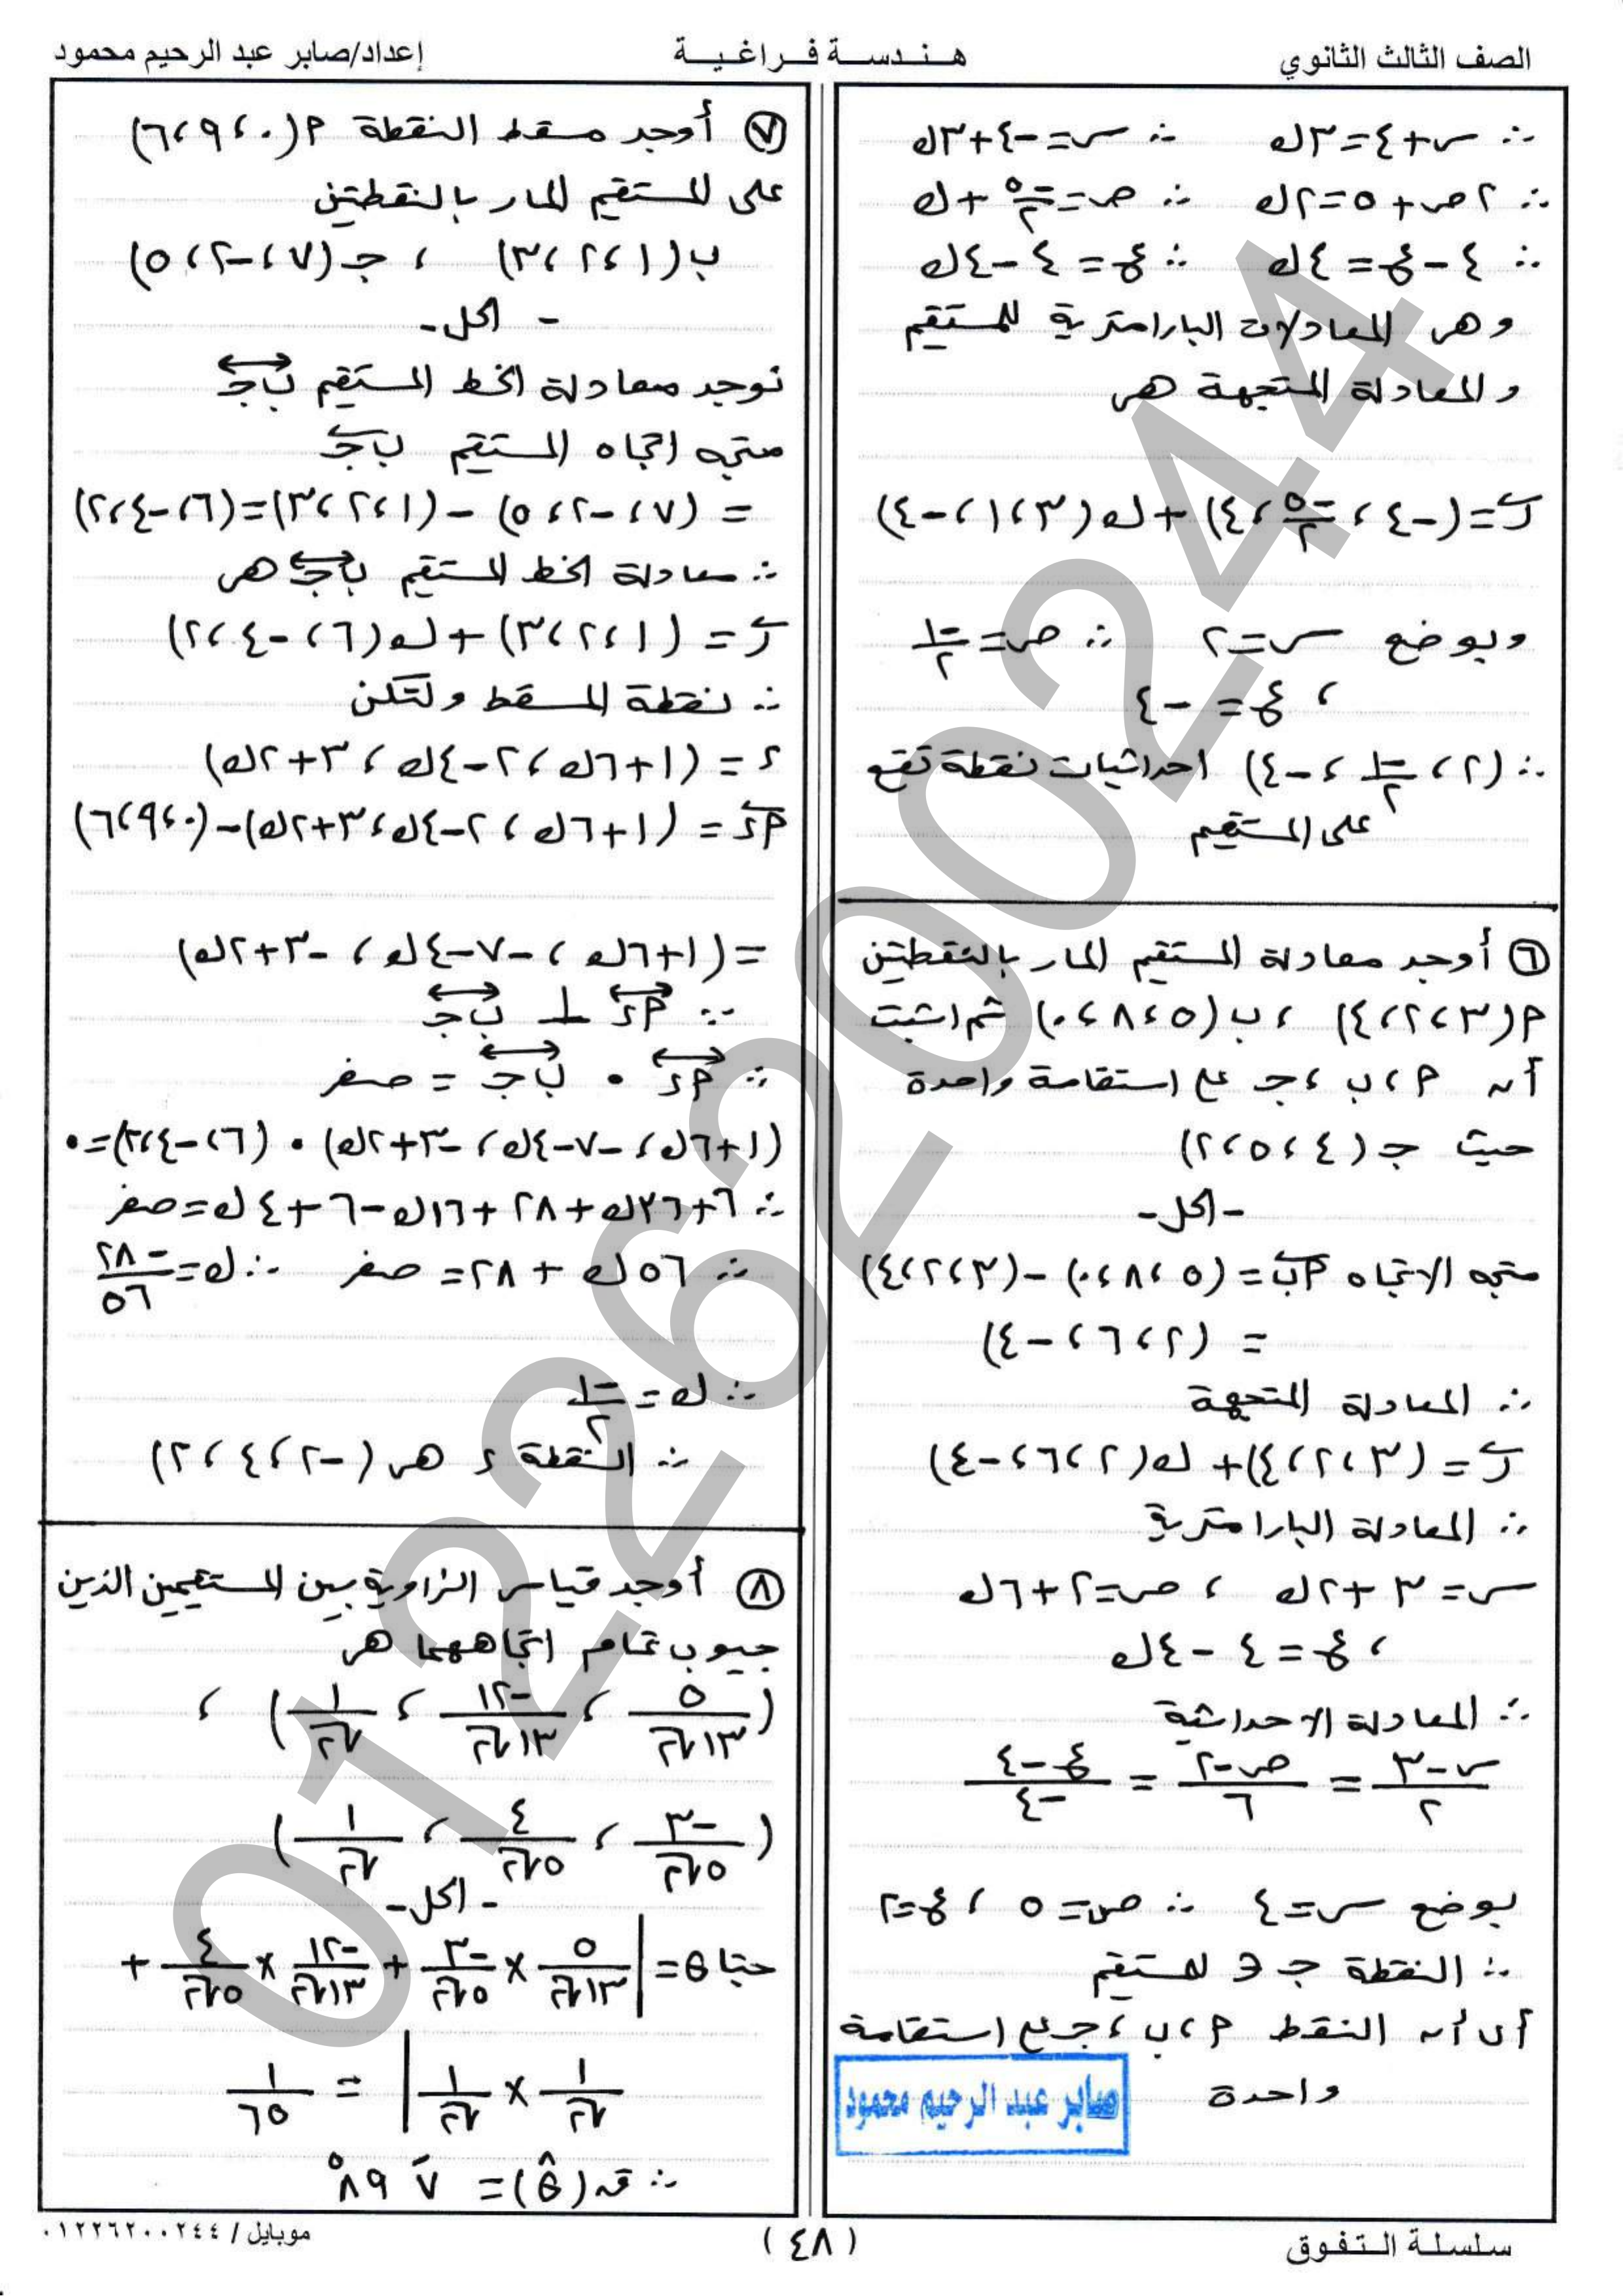 الصف الثالث الثانوي
هندسة فراغية
إعداد/صابر عبد الرحيم محمود
∴ س+٤=٣ك ∴ س=-٤+٣ك
∴ ٢ص+٥=٢ك ∴ ص=-٥/٢+ك
∴ ٤-ع=٤ك ∴ ع=٤-٤ك
وهى المعادلات البارامترية للمستقيم
والمعادلة المتجهة هى
ر=(-٤، -٥/٢، ٤)+ك(٣، ١، -٤)
وبوضع س=٢ ∴ ص=-١/٢
، ع=-٤
∴ (٢، -١/٢، -٤) احداثيات نقطة تقع
على المستقيم
٦ أوجد معادلة المستقيم المار بالنقطتين
م(٣،٢،٤) ، ب(٥،٨،٠) ثم اثبت
أن م،ب،جـ على استقامة واحدة
حيث جـ(٤،٥،٢)
-الحل-
متجه الاتجاه مب=(٥،٨،٠)-(٣،٢،٤)
=(٢،٦،-٤)
∴ المعادلة المتجهة
ر=(٣،٢،٤)+ك(٢،٦،-٤)
∴ المعادلة البارامترية
س=٣+٢ك ، ص=٢+٦ك
، ع=٤-٤ك
∴ المعادلة الاحداثية
(س-٣)/٢=(ص-٢)/٦=(ع-٤)/-٤
بوضع س=٤ ∴ ص=٥ ، ع=٢
∴ النقطة جـ ∈ للمستقيم
أى أن النقط م،ب،جـ على استقامة
واحدة
صابر عبد الرحيم محمود
٧ أوجد مسقط النقطة م(٠،٩،٦)
على المستقيم المار بالنقطتين
ب(١،٢،٣) ، جـ(٧،-٢،٥)
-الحل-
نوجد معادلة الخط المستقيم بجـ
متجه اتجاه المستقيم بجـ
=(٧،-٢،٥)-(١،٢،٣)=(٦،-٤،٢)
∴ معادلة الخط المستقيم بجـ هى
ر=(١،٢،٣)+ك(٦،-٤،٢)
∴ نقطة المسقط ولتكن
ء=(١+٦ك، ٢-٤ك، ٣+٢ك)
مء=(١+٦ك، ٢-٤ك، ٣+٢ك)-(٠،٩،٦)
=(١+٦ك، -٧-٤ك، -٣+٢ك)
∵ مء ⊥ بجـ
∴ مء • بجـ = صفر
(١+٦ك، -٧-٤ك، -٣+٢ك) • (٦،-٤،٢)=٠
∴ ٦+٣٦ك+٢٨+١٦ك-٦+٤ك=صفر
∴ ٥٦ك+٢٨=صفر ∴ ك=-٢٨/٥٦
∴ ك=-١/٢
∴ النقطة ء هى (-٢،٤،٢)
٨ أوجد قياس الزاوية بين المستقيمين الذين
جيوب تمام اتجاههما هى
(٥/١٣√٢ ، -١٢/١٣√٢ ، ١/√٢) ،
(-٣/٥√٢ ، ٤/٥√٢ ، ١/√٢)
-الحل-
جتاθ=|٥/١٣√٢ × -٣/٥√٢ + -١٢/١٣√٢ × ٤/٥√٢ +
١/√٢ × ١/√٢| = ١/٦٥
∴ ق(θ)= ٧َ ٨٩°
سلسلة التفوق
(٤٨)
موبايل / ٠١٢٢٦٢٠٠٢٤٤
01226200244